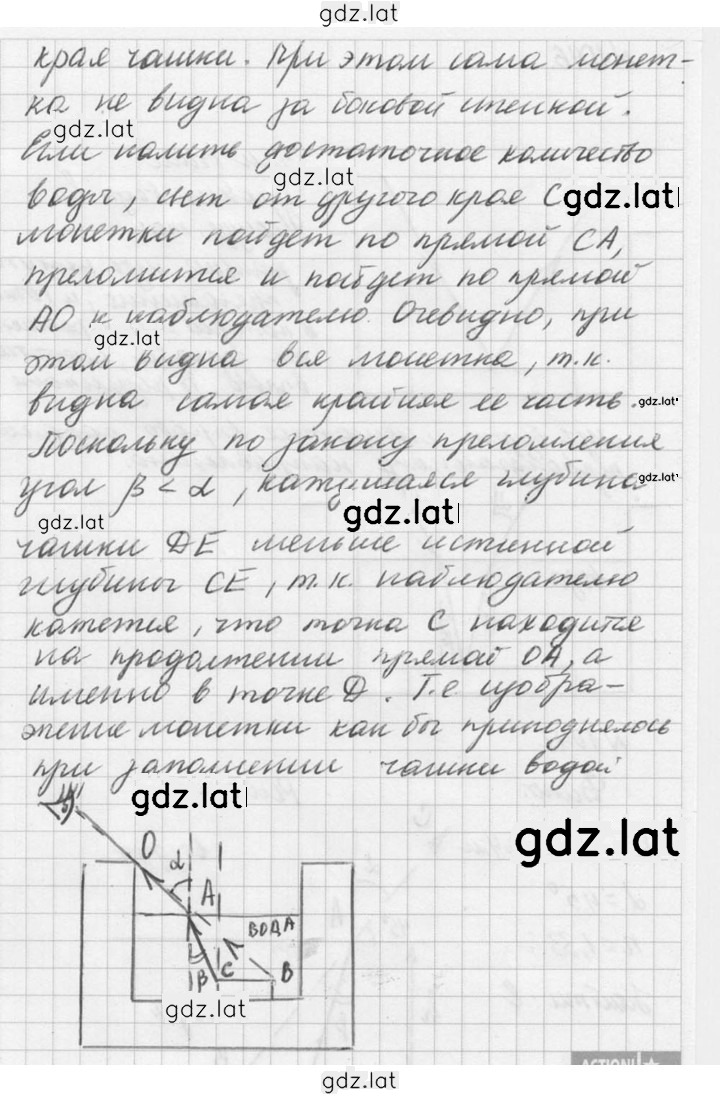 gdz.lat
края чашки. При этом сама монет-
ка не видна за боковой стенкой.
gdz.lat
Если налить достаточное количество
gdz.lat
воды, свет от другого края C
gdz.lat
монетки пойдет по прямой CA,
преломится и пойдет по прямой
AO к наблюдателю. Очевидно, при
gdz.lat
этом видна вся монетка, т.к.
видна самая крайняя ее часть.
gdz.lat
Поскольку по закону преломления
угол β < α, кажущаяся глубина
gdz.lat
gdz.lat
gdz.lat
чашки DE меньше истинной
глубины CE, т.к. наблюдателю
кажется, что точка C находится
на продолжении прямой OA, а
именно в точке D. Т.е изобра-
жение монетки как бы приподнялось
при заполнении чашки водой
gdz.lat
gdz.lat
O
α
A
ВОДА
β
C
B
gdz.lat
ACTION!
gdz.lat